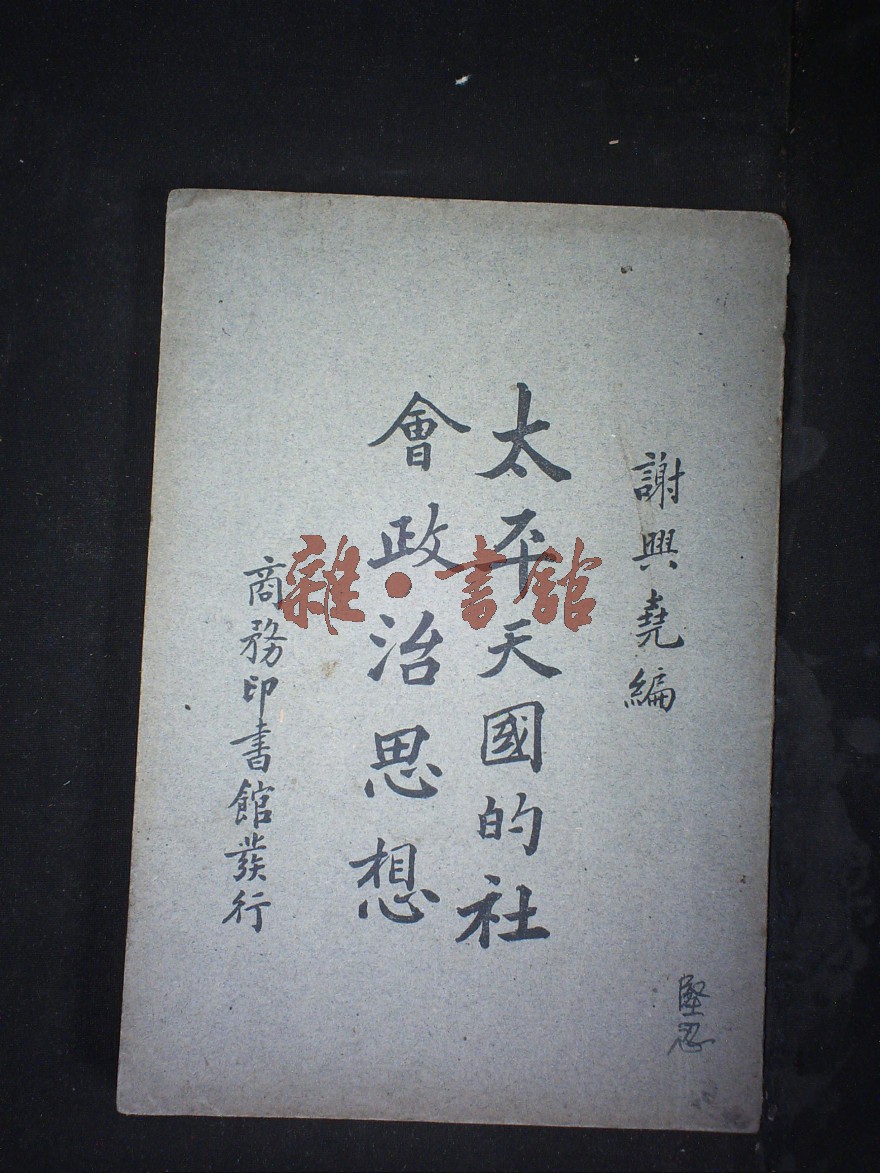 謝興堯編
太平天國的社
會政治思想
商務印書館發行
堅忍
雜·書館